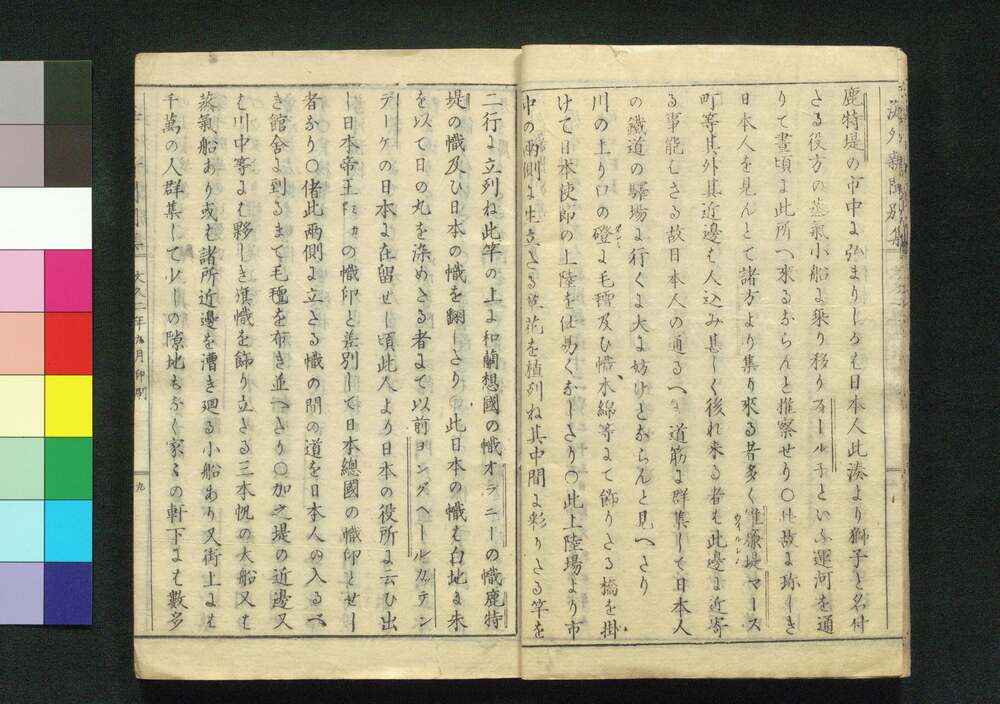 海外新聞別集
鹿特堤の市中に弘まりしろも日本人此湊より獅子と名付
さる役方の蒸氣小船に乗り移りフォール子といふ運河を通
りて晝頃に此所へ來るならんと推察せり○此故に珍しき
日本人を見んとて諸方より集り來る者多く維廉堤マース
町等其外其近邊も人込み甚しく後れ来る者も此邊に近寄
る事能はさる故日本人の通るへき道筋に群集して日本人
の鐵道の驛場に行くに大に妨けとならんと見へたり
川の上り口の磴に毛氈及ひ幟木綿等にて飾りたる橋を掛
けて日本使節の上陸を仕易くなしたり○此上陸場より市
中の両側に生立たる草花を植列ね其中間に彩りたる竿を
二行に立列ね此竿の上に和蘭想國の幟オラニーの幟鹿特
堤の幟及ひ日本の幟を翻したり此日本の幟も白地に朱
を以て日の丸を染めたる者にて以前ヨンクヘールカテン
デーケの日本に在留せし頃此人より日本の役所に云ひ出
し日本帝王の幟印と差別して日本總國の幟印とせし
者なり○偖此両側に立たる幟の間の道を日本人の入るべ
き館舎に到るまて毛氈を布き並へたり○加之堤の近邊又
も川中等にも夥しき旗幟を飾り立たる三本帆の大船又も
蒸氣船あり或も諸所近邊を漕き廻る小船あり又街上にも
千萬の人群集して少しの隙地もなく家々の軒下にも數多
文久二年九月印刷
九